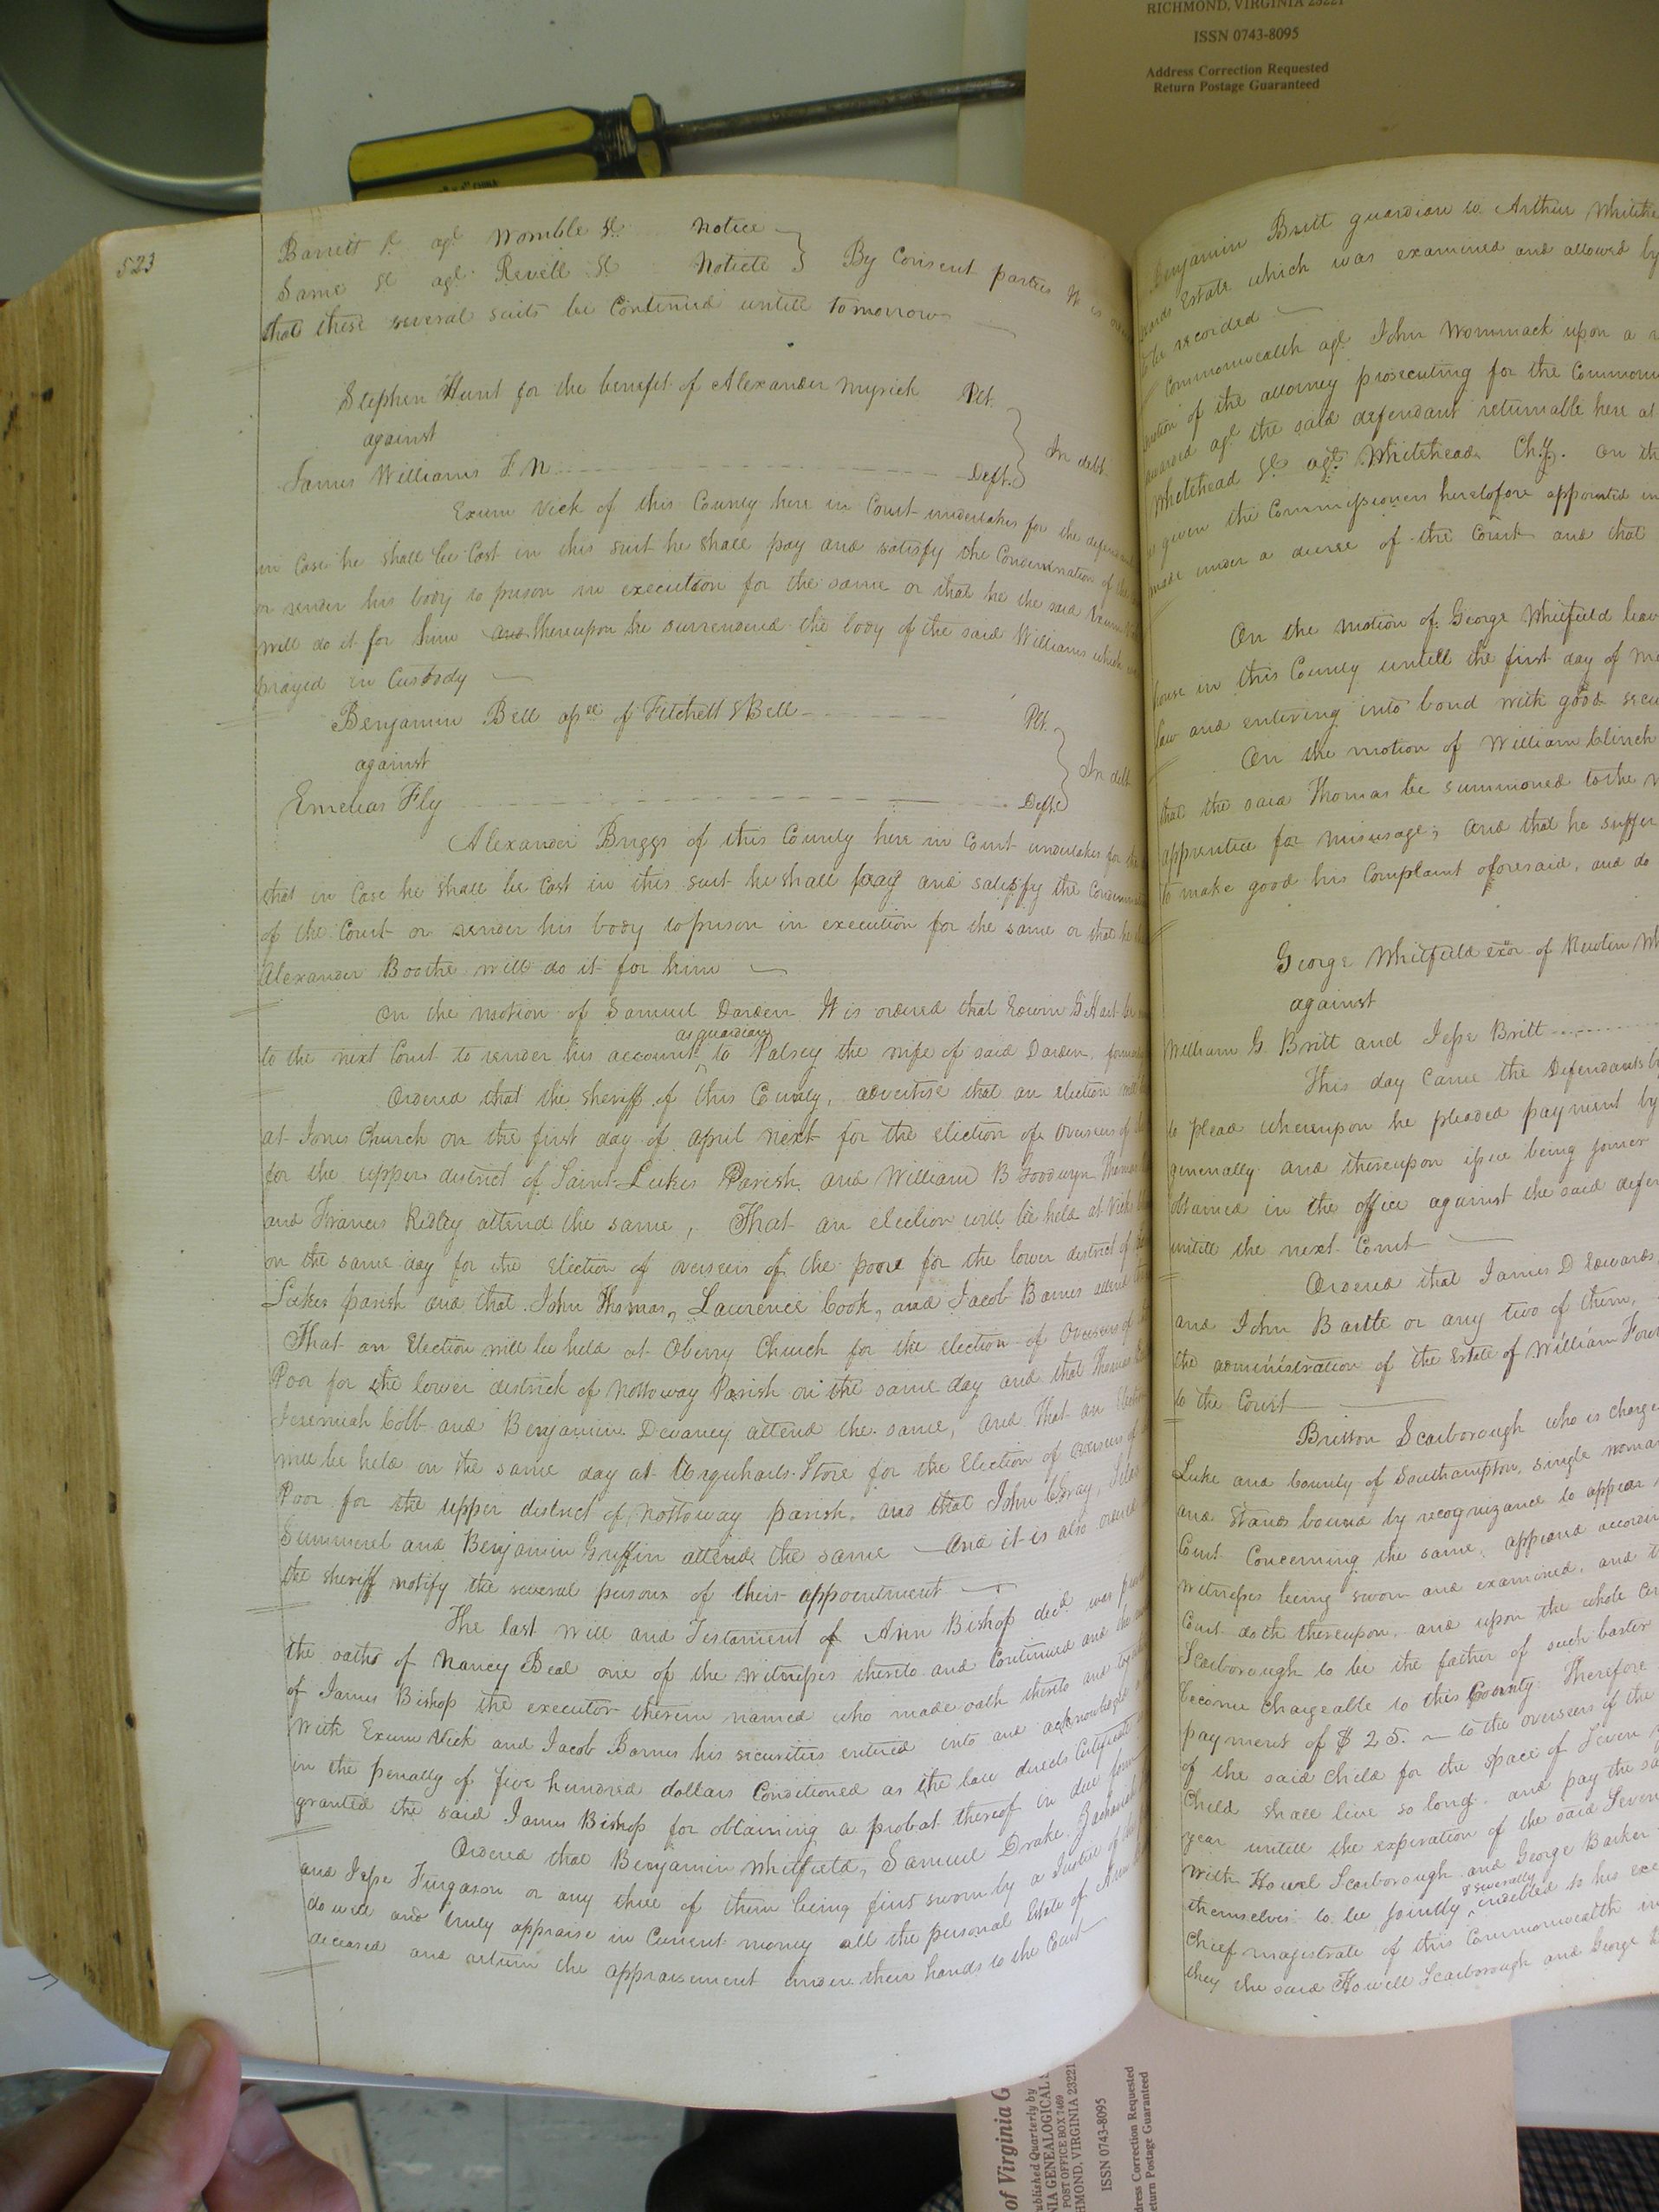 RICHMOND, VIRGINIA 23221
ISSN 0743-8095
Address Correction Requested
Return Postage Guaranteed
523
Barrett &c agt Womble &c Notice
Same &c agt Revell &c Noticle } By Consent parties it is
that these several suits be Continued untill tomorrow
Stephen Hunt for the benefit of Alexander Myrick Plt.
against
In debt
James Williams F. N. Deft.
Exum Vick of this County here in Court undertakes for the
in Case he shall be Cast in this suit he shall pay and satisfy the Condemnation of
or render his body to prison in execution for the same or that he the said
will do it for him and thereupon he surrendered the body of the said Williams which
prayed in Custody
Benjamin Bell of Fitchett & Bell Plt.
against
In debt
Emelias Fly Deft.
Alexander Briggs of this County here in Court undertakes for
that in Case he shall be Cast in this suit he shall pay and satisfy the
of the Court or render his body to prison in execution for the same or that he
Alexander Boothe will do it for him
On the motion of Samuel Darden It is ordered that Edwin G Hart be
as guardian
to the next Court to render his account to Patsey the wife of said Darden,
Ordered that the sheriff of this County, advertise that an election
at Jones Church on the first day of april next for the election of overseers of
for the upper district of Saint Lukes Parish and William B Goodwyn Thomas
and Francis Ridley attend the same, That an election will be held at Vicks
on the same day for the Election of overseers of the poore for the lower district of
Lukes parish and that John Thomas, Lawrence Cook, and Jacob Barnes attend
That an Election will be held at Oberry Church for the election of Overseers of
Poor for the lower district of Nottoway Parish on the same day and that Thomas
Jeremiah Cobb and Benjamin Devaney attend the same, and That an Election
will be held on the same day at Urquharts Store for the Election of overseers of
Poor for the upper district of Nottoway parish, and that John Gray,
Summerel and Benjamin Griffin attend the same And it is also
the sheriff notify the several persons of their appointment
The last will and Testament of Ann Bishop decd. was
the oaths of Nancy Beal one of the witnesses thereto and Continued and
of James Bishop the executor therein named who made oath thereto and
With Exum Vick and Jacob Barnes his securities entered into and acknowledged
in the penalty of five hundred dollars Conditioned as the law directs Certificate
granted the said James Bishop for obtaining a probat thereof in due form
Ordered that Benjamin Whitfield, Samuel Drake, Zachariah
and Jesse Furgason or any three of them being first sworn by a Justice of
do well and truly appraise in Current money all the personal Estate of Ann
deceased and return the appraisement under their hands to the Court
Benjamin Britt guardian to Arthur
Estate which was examined and allowed by
to be recorded
Commonwealth agt John Wommack upon a
of the attorney prosecuting for the
awarded agt the said defendant returnable here at
Whitehead &c agt Whitehead Chy. On the
given the Commissioners heretofore appointed
made under a decree of the Court and that
On the motion of George Whitfield
house in this County untill the first day of
law and entering into bond with good
On the motion of William Clinch
that the said Thomas be summoned to the
apprentice for misusage; And that he
to make good his Complaint aforesaid, and do
George Whitfield exor of Newten
against
William G. Britt and Jesse Britt
This day Came the Defendants by
to plead whereupon he pleaded payment by
generally and thereupon issue being joined
obtained in the office against the said
untill the next Court
Ordered that James D Edwards,
and John Bartte or any two of them,
the administration of the Estate of William
to the Court
Brisson Scarborough who is
Luke and County of Southampton, single
and Stands bound by recognizance to appear
Court Concerning the same, appeared
Witnesses being sworn and examined, and
Court doth thereupon, and upon the whole
Scarborough to be the father of such
become Chargeable to this County Therefore
payment of $ 25. to the overseers of the
of the said Child for the space of Seven
Child shall live so long, and pay the
year untill the expiration of the said Seven
with Howel Scarborough and George Barker
& severally
themselves to be jointly indebted to his
Chief magistrate of this Commonwealth in
they the said Howell Scarborough and George
of Virginia G
Published Quarterly by
NIA GENEALOGICAL
POST OFFICE BOX 7469
HMOND, VIRGINIA 23221
ISSN 0743-8095
dress Correction Requested
eturn Postage Guaranteed